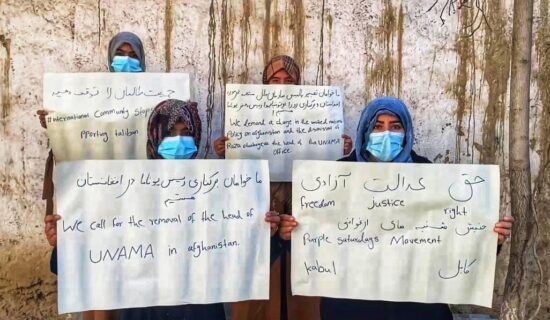 حمایت طالبان را توقف دهید
#International Community Stop
pporting taliban
We demand a change in the united nations
Policy on afghanistan and the dismissal of
Roza otunbayeva the head of the UNAMA
office.
ما خواهان برکناری رییس یوناما در افغانستان
هستیم
We call for the removal of the head of
UNAMA in afghanistan.
حق عدالت آزادی
freedom Justice right
جنبش شنبه های ارغوانی
Purple saturdays Movement
kabul کابل